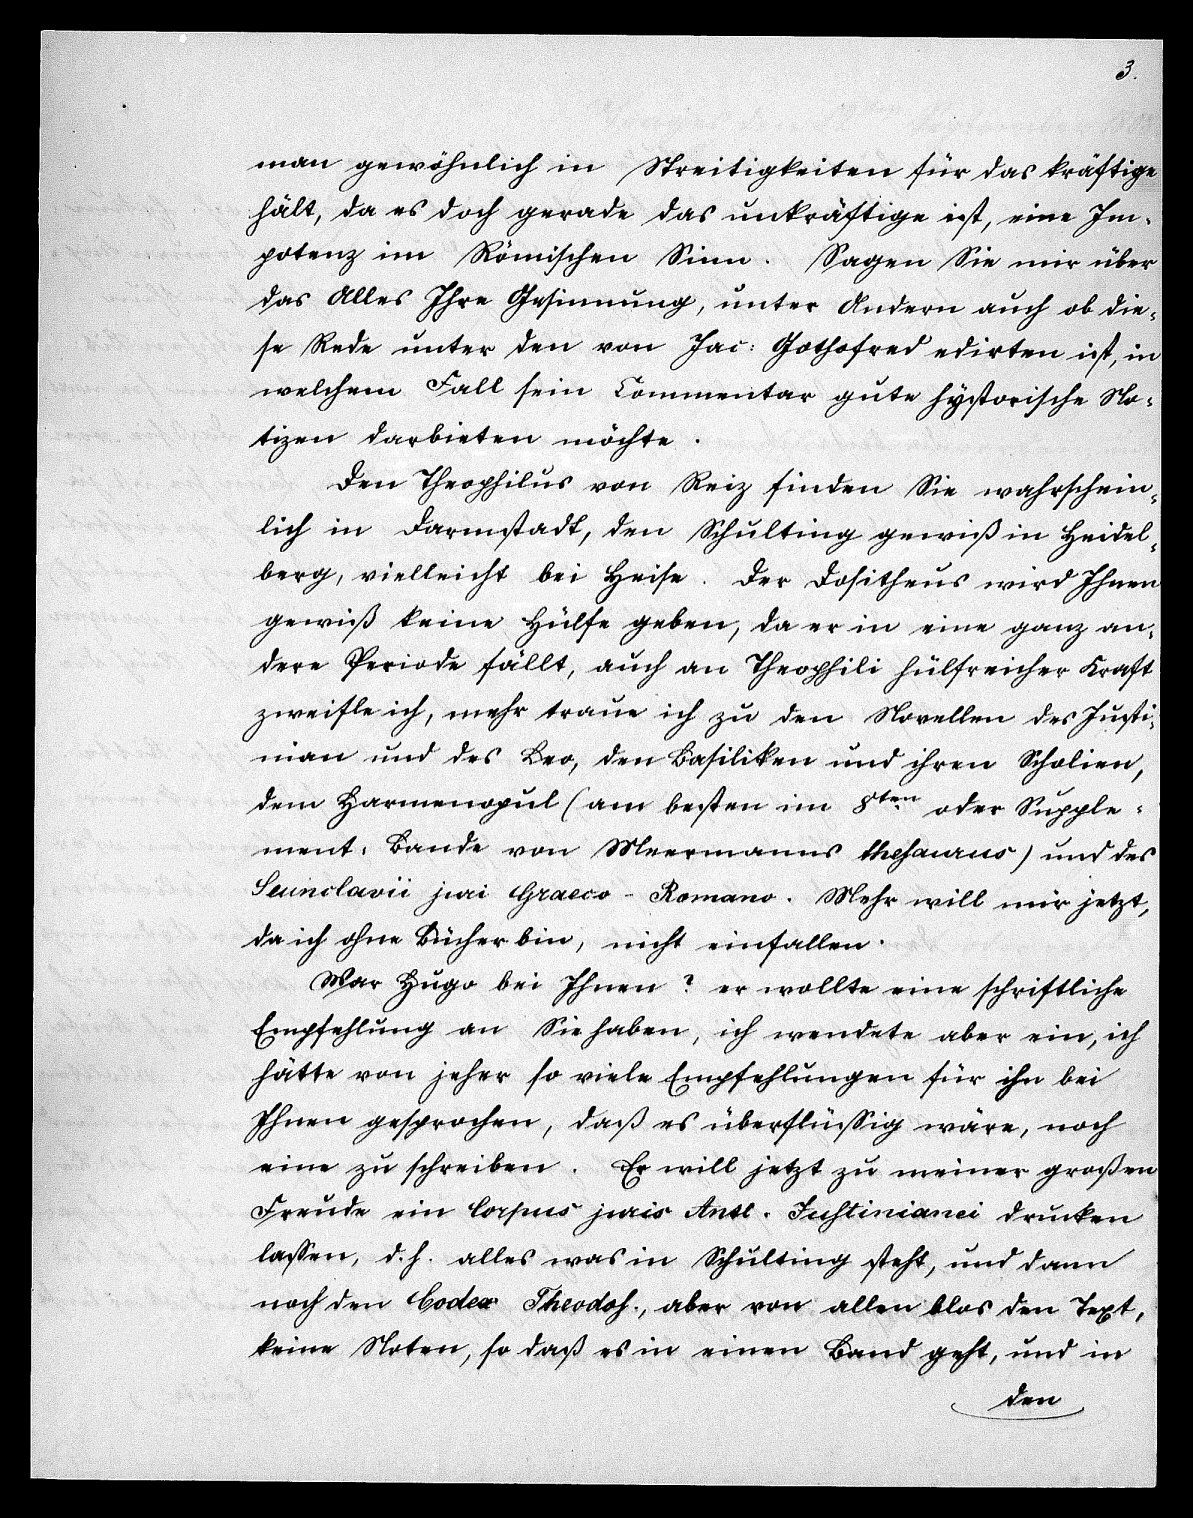 3.
man gewöhnlich in Streitigkeiten für das kräftige
hält, da es doch gerade das unkräftige ist, eine Im-
potenz im Römischen Sinn. Sagen Sie mir über
das Alles Ihre Gesinnung, unter Andern auch ob die-
se Rede unter den von Jac: Gothofred edirten ist, in
welchem Fall sein Commentar gute hystorische No-
tizen darbieten möchte.
Den Theophilus von Reiz finden Sie wahrschein-
lich in Darmstadt, den Schulting gewiß in Heidel-
berg, vielleicht bei Heise. Der Dositheus wird Ihnen
gewiß keine Hülfe geben, da er in eine ganz an-
dere Periode fällt, auch an Theophili hülfreicher Kraft
zweifle ich, mehr traue ich zu den Novellen des Justi-
nian und des Leo, den Basiliken und ihren Scholien,
dem Harmenopul (am besten im 8ten oder Supple-
ment-Bande von Meermanns thesaurus) und des
Leunclavii juri Graeco-Romano. Mehr will mir jetzt,
da ich ohne Bücher bin, nicht einfallen.
War Hugo bei Ihnen? er wollte eine schriftliche
Empfehlung an Sie haben, ich wendete aber ein, ich
hätte von jeher so viele Empfehlungen für ihn bei
Ihnen gesprochen, daß es überflüssig wäre, noch
eine zu schreiben. Er will jetzt zu meiner großen
Freude ein Corpus juris Ante-Justinianei drucken
lassen, d. h. alles was in Schulting steht, und dann
noch den Codex Theodos., aber von allen blos den Text,
keine Noten, so daß es in einen Band geht, und in
den